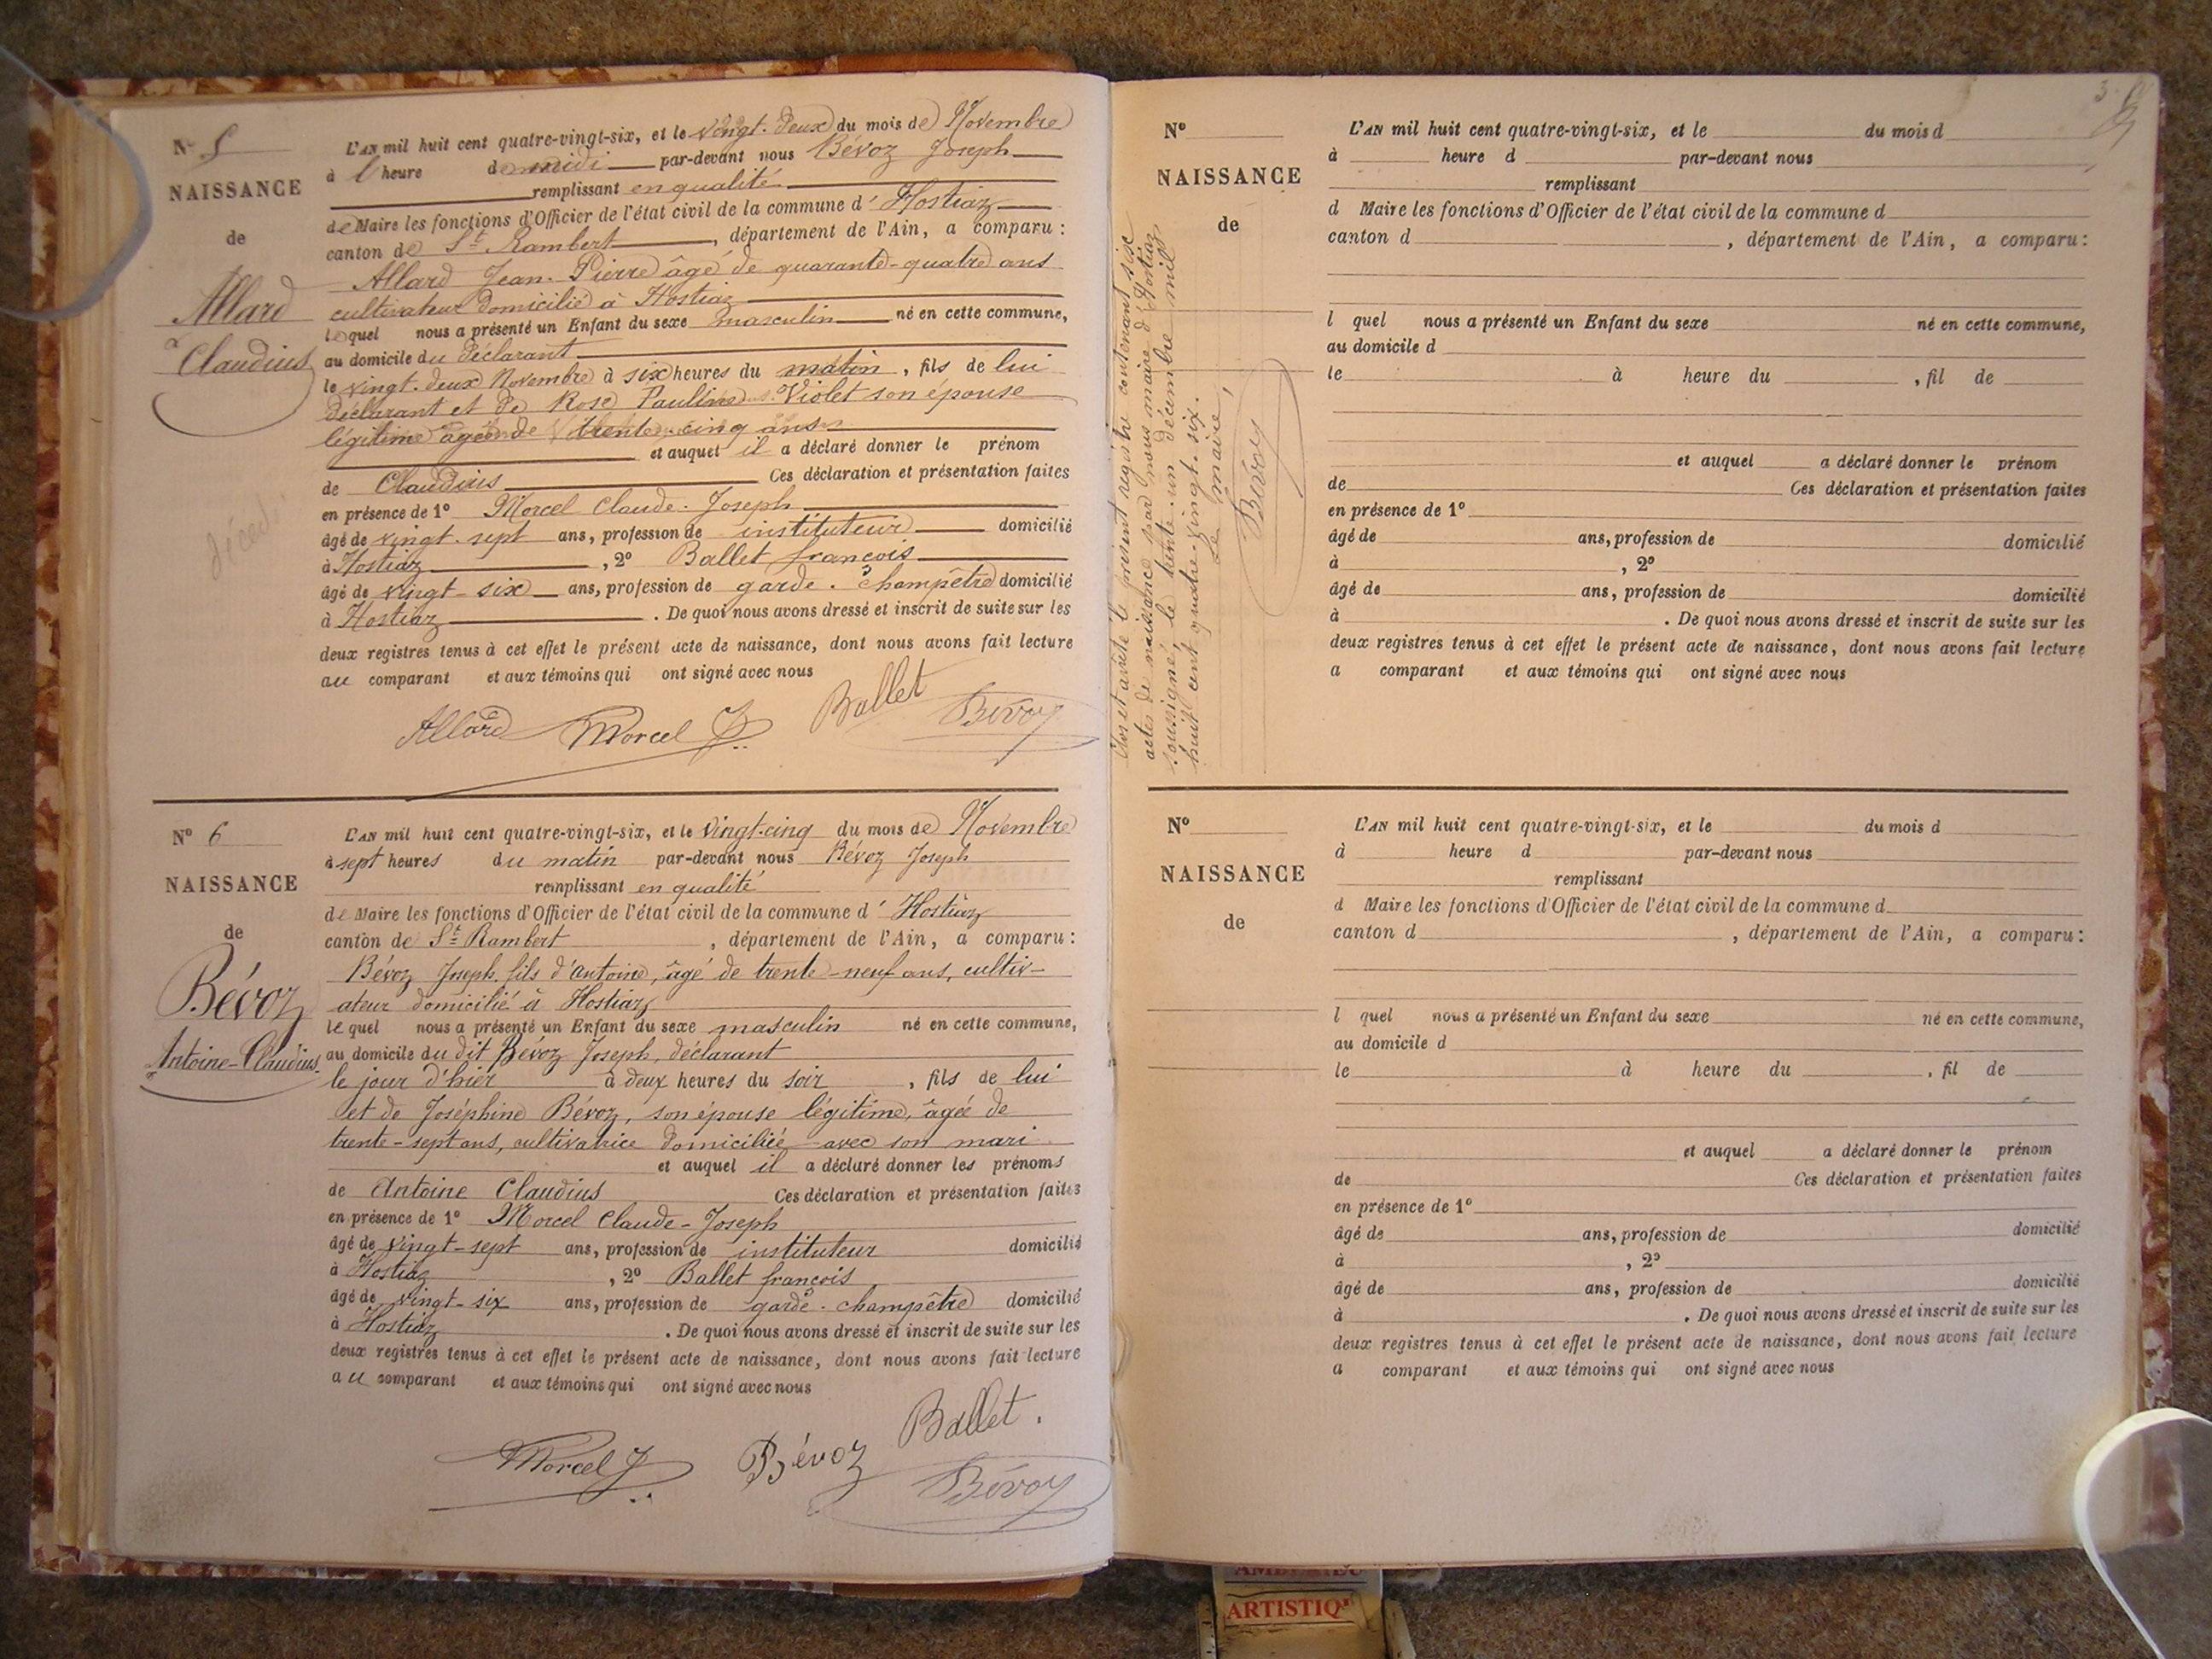 N° 5
NAISSANCE
de
Allard
Claudius
décédé
L'AN mil huit cent quatre-vingt-six, et le vingt-deux du mois de Novembre
à l'heure de midi par-devant nous Bévoz Joseph
remplissant en qualité
de Maire les fonctions d'Officier de l'état civil de la commune d'Hostiaz
canton de St Rambert, département de l'Ain, a comparu :
Allard Jean-Pierre âgé de quarante-quatre ans
cultivateur domicilié à Hostiaz
lequel nous a présenté un Enfant du sexe masculin né en cette commune,
au domicile du déclarant
le vingt-deux Novembre à six heures du matin, fils de lui
déclarant et de Rose Pauline Violet son épouse
légitime âgée de trente-cinq ans
et auquel il a déclaré donner le prénom
de Claudius Ces déclaration et présentation faites
en présence de 1° Morcel Claude-Joseph
âgé de vingt-sept ans, profession de instituteur domicilié
à Hostiaz, 2° Ballet françois
âgé de vingt-six ans, profession de garde-champêtre domicilié
à Hostiaz. De quoi nous avons dressé et inscrit de suite sur les
deux registres tenus à cet effet le présent acte de naissance, dont nous avons fait lecture
au comparant et aux témoins qui ont signé avec nous
Allard Morcel J Ballet Bévoz
N° 6
NAISSANCE
de
Bévoz
Antoine-Claudius
L'AN mil huit cent quatre-vingt-six, et le vingt-cinq du mois de Novembre
à sept heures du matin par-devant nous Bévoz Joseph
remplissant en qualité
de Maire les fonctions d'Officier de l'état civil de la commune d'Hostiaz
canton de St Rambert, département de l'Ain, a comparu :
Bévoz Joseph fils d'Antoine, âgé de trente-neuf ans, cultiv-
ateur domicilié à Hostiaz
lequel nous a présenté un Enfant du sexe masculin né en cette commune,
au domicile du dit Bévoz Joseph, déclarant
le jour d'hier à deux heures du soir, fils de lui
et de Joséphine Bévoz, son épouse légitime, âgée de
trente-sept ans, cultivatrice domiciliée avec son mari
et auquel il a déclaré donner les prénoms
de Antoine Claudius Ces déclaration et présentation faites
en présence de 1° Morcel Claude-Joseph
âgé de vingt-sept ans, profession de instituteur domicilié
à Hostiaz, 2° Ballet françois
âgé de vingt-six ans, profession de garde-champêtre domicilié
à Hostiaz. De quoi nous avons dressé et inscrit de suite sur les
deux registres tenus à cet effet le présent acte de naissance, dont nous avons fait lecture
au comparant et aux témoins qui ont signé avec nous
Morcel J Bévoz Ballet. Bévoz
3
N°
NAISSANCE
de
Clos et arrêté le présent registre contenant six
actes de naissance par nous maire d'Hostiaz
soussigné, le trente-un décembre mil
huit cent quatre-vingt-six.
Le maire,
Bévoz
L'AN mil huit cent quatre-vingt-six, et le du mois d
à heure d par-devant nous
remplissant
d Maire les fonctions d'Officier de l'état civil de la commune d
canton d , département de l'Ain, a comparu :
l quel nous a présenté un Enfant du sexe né en cette commune,
au domicile d
le à heure du , fil de
et auquel a déclaré donner le prénom
de Ces déclaration et présentation faites
en présence de 1°
âgé de ans, profession de domicilié
à , 2°
âgé de ans, profession de domicilié
à . De quoi nous avons dressé et inscrit de suite sur les
deux registres tenus à cet effet le présent acte de naissance, dont nous avons fait lecture
a comparant et aux témoins qui ont signé avec nous
N°
NAISSANCE
de
L'AN mil huit cent quatre-vingt-six, et le du mois d
à heure d par-devant nous
remplissant
d Maire les fonctions d'Officier de l'état civil de la commune d
canton d , département de l'Ain, a comparu :
l quel nous a présenté un Enfant du sexe né en cette commune,
au domicile d
le à heure du , fil de
et auquel a déclaré donner le prénom
de Ces déclaration et présentation faites
en présence de 1°
âgé de ans, profession de domicilié
à , 2°
âgé de ans, profession de domicilié
à . De quoi nous avons dressé et inscrit de suite sur les
deux registres tenus à cet effet le présent acte de naissance, dont nous avons fait lecture
a comparant et aux témoins qui ont signé avec nous
ARTISTIQ